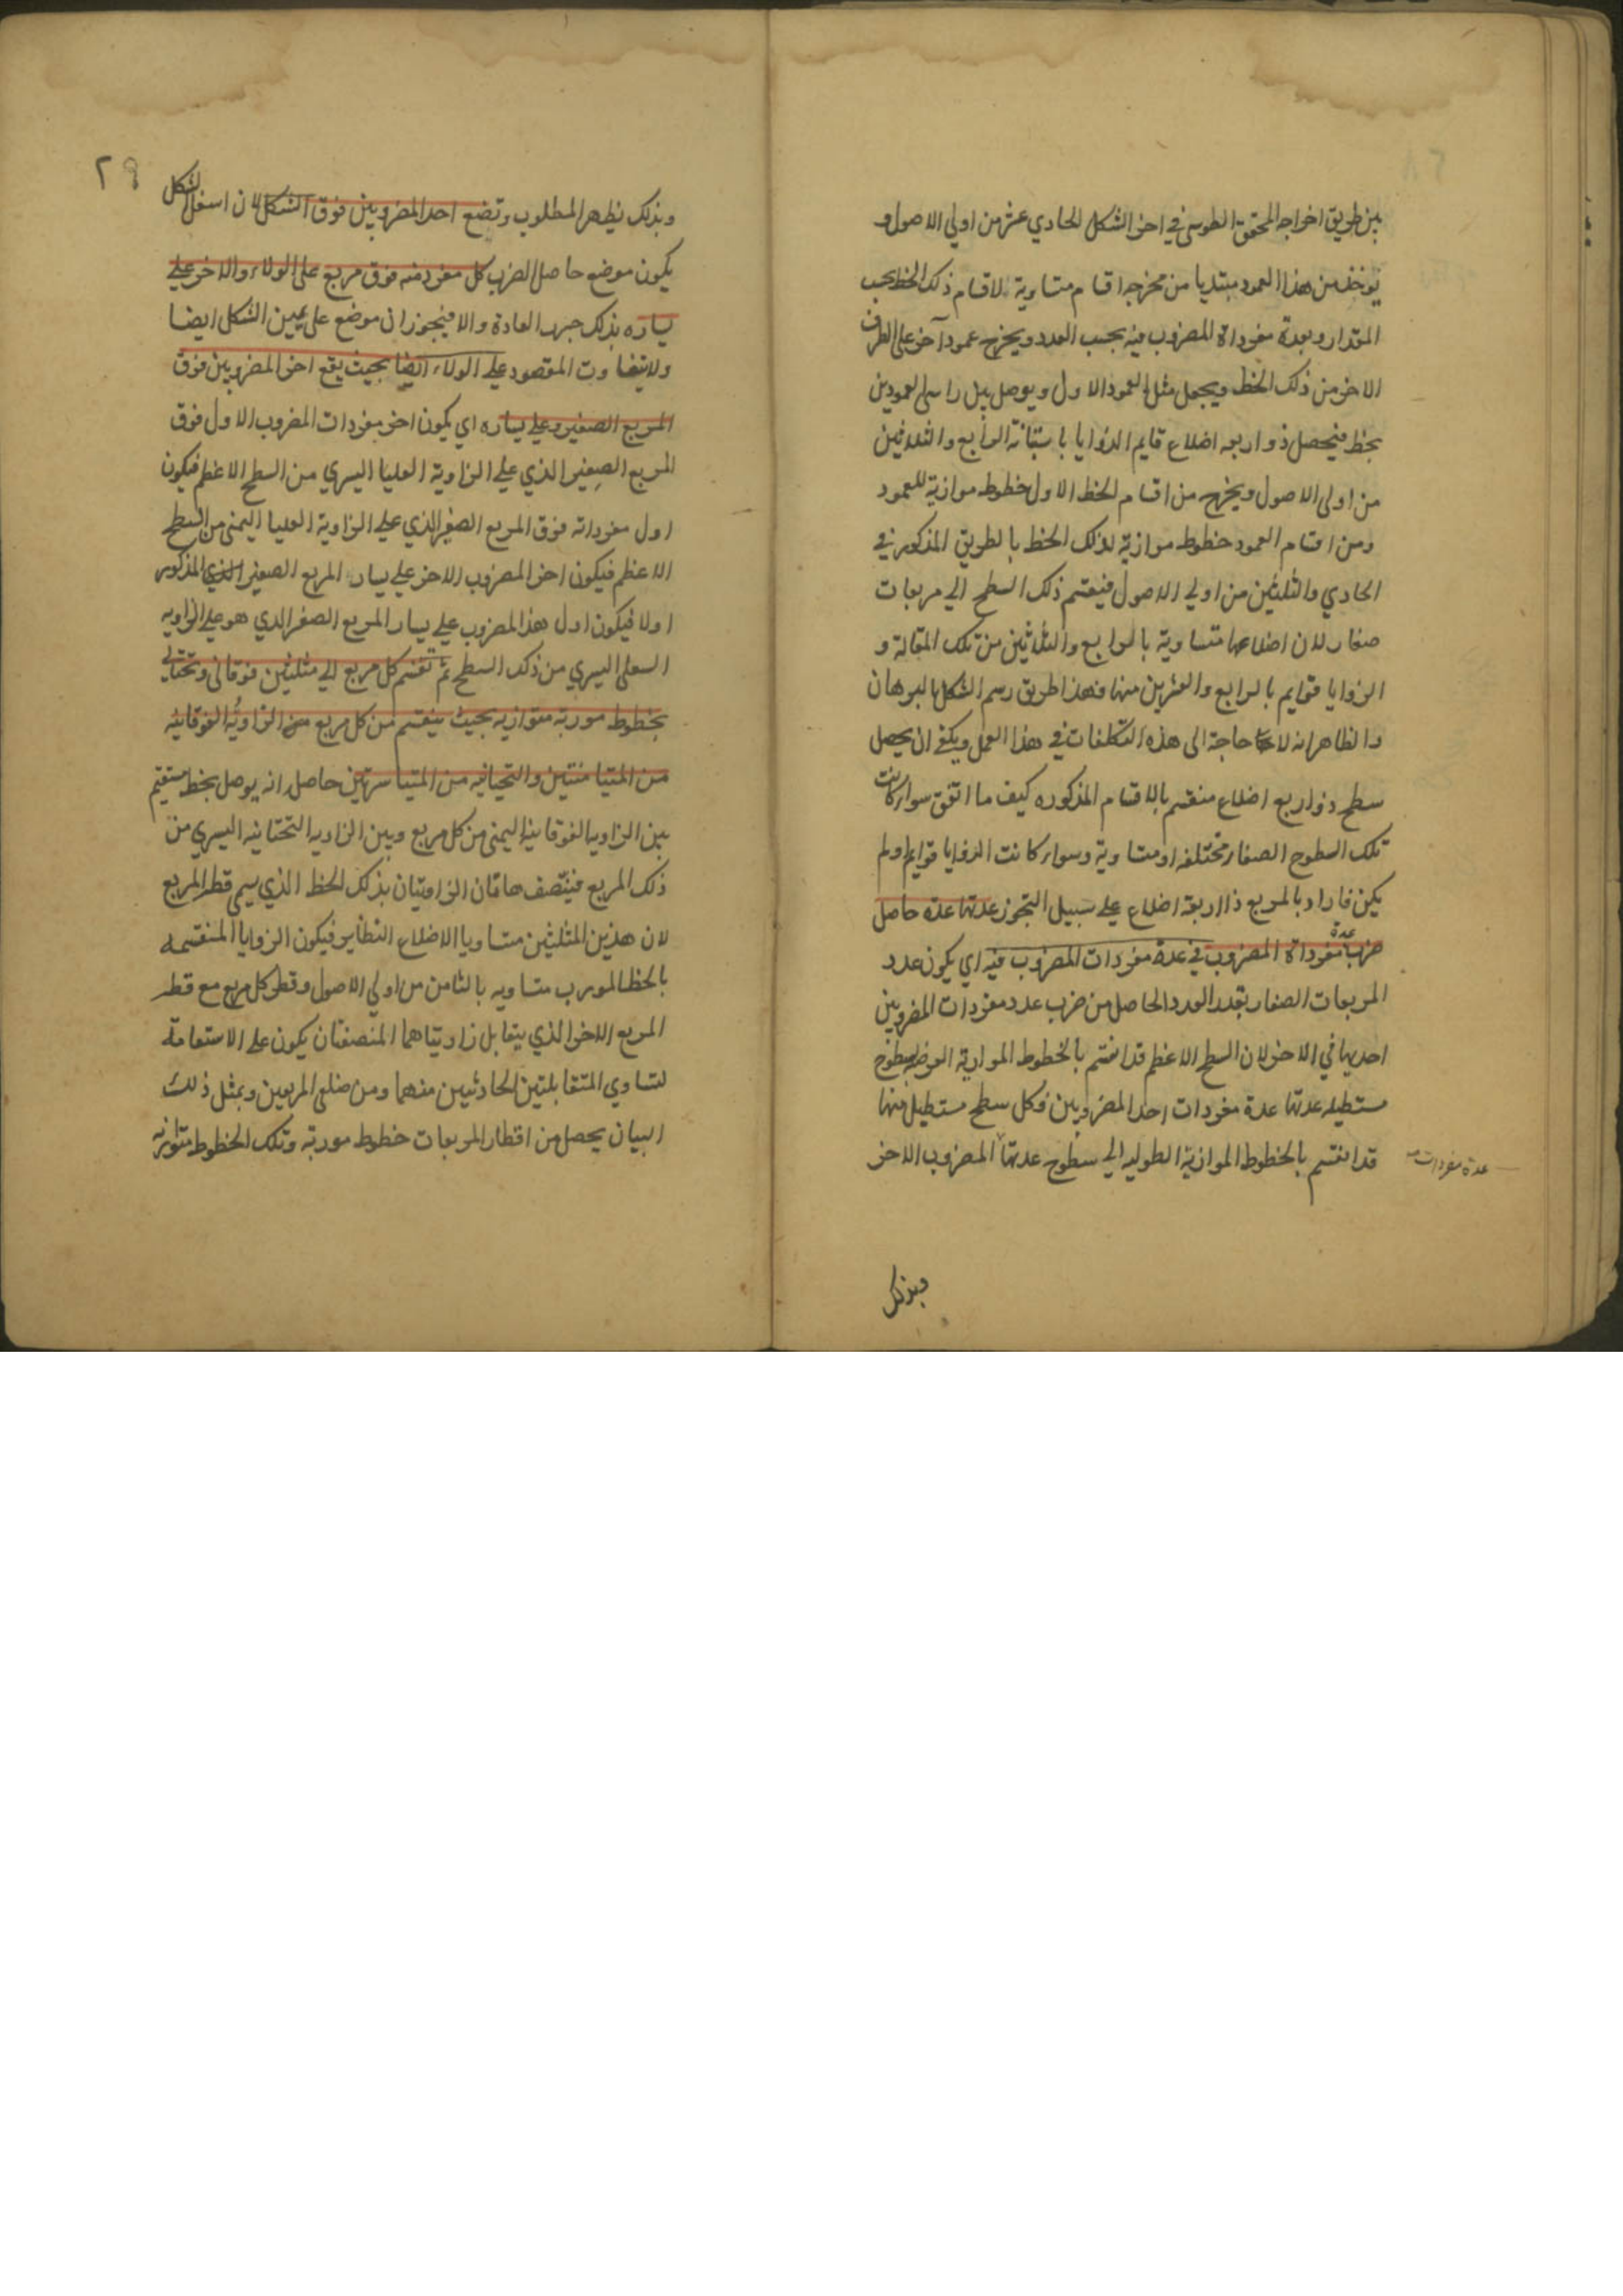 بين طريق اخراجه المحقق الطوسي في اخر الشكل الحادي عشر من اولي الاصول و
يؤخذ من هذا العمود مبتديا من مخرجه اقسام متساوية لاقسام ذلك الخط بحسب
المقدار وبعدة مفرداة المضروب فيه بحسب العدد ويخرج عمود آخر على الطرف
الاخر من ذلك الخط ويجعل مثل العمود الاول ويوصل بين راسى العمودين
بخط فيحصل ذو اربعه اضلاع قايم الزوايا باستبانة الرابع والثلاثين
من اولى الاصول ويخرج من اقسام الخط الاول خطوط موازية للعمود
ومن اقسام العمود خطوط موازية لذلك الخط بالطريق المذكور في
الحادي والثلثين من اولي الاصول فينقسم ذلك السطح الي مربعات
صغار لان اضلاعها متساوية بالرابع والثلاثين من تلك المقالة و
الزوايا قوايم بالرابع والعشرين منها فهذا طريق رسم الشكل بالبرهان
والظاهر انه لا حاجة الى هذه التكلفات في هذا العمل ويكفي ان يحصل
سطح ذو اربع اضلاع منقسم بالاقسام المذكوره كيف ما اتفق سواء كانت
تلك السطوح الصغار مختلفه او متساوية وسواء كانت الزوايا قوايم اولم
يكن فاراد بالمربع ذا اربعة اضلاع علي سبيل التجوز عدتها عدة حاصل
ضرب عدة مفرداة المضروب في عدة مفردات المضروب فيه اي يكون عدد
المربعات الصغار بقدر العدد الحاصل من ضرب عدد مفردات المضروبين
احديهما في الاخر لان السطح الاعظم قد انقسم بالخطوط الموازية العرضيه بسطوح
مستطيله عدتها عدة مفردات احد المضروبين وكل سطح مستطيل منها
قد انقسم بالخطوط الموازية الطوليه الي سطوح عدتها المضروب الاخر
عدة مفردات
وبذلك
٢٩
وبذلك يظهر المطلوب وتضع احد المضروبين فوق الشكل لان اسفل الشكل
يكون موضع حاصل الضرب كل مفرد منه فوق مربع على الولاء والاخر علي
يساره بذلك جرت العادة والا فيجوز ان موضع على يمين الشكل ايضا
ولا يتفاوت المقصود علي الولاء ايضا بحيث يقع اخر المضروبين فوق
المربع الصغير وعلي يساره اي يكون اخر مفردات المضروب الاول فوق
المربع الصغير الذي علي الزاوية العليا اليسري من السطح الاعظم فيكون
اول مفرداته فوق المربع الصغير الذي علي الزاوية العليا اليمنى من السطح
الاعظم فيكون اخر المضروب الاخر علي يسار المربع الصغير الذي المذكور
اولا فيكون اول هذا المضروب علي يسار المربع الصغير الذي هو علي الزاويه
السفلى اليسري من ذلك السطح ثم تقسم كل مربع الي مثلثين فوقاني وتحتاني
بخطوط موربة متوازيه بحيث ينقسم من كل مربع من الزاوية الفوقانيه
من المتيامنتين والتحتانيه من المتياسرتين حاصله انه يوصل بخط مستقيم
بين الزاويه الفوقانية اليمنى من كل مربع وبين الزاويه التحتانيه اليسري من
ذلك المربع فينتصف هاتان الزاويتان بذلك الخط الذي يسمي قطر المربع
لان هذين المثلثين متساويا الاضلاع النظاير فيكون الزوايا المنقسمه
بالخط المورب متساويه بالثامن من اولي الاصول وقطر كل مربع مع قطر
المربع الاخر الذي يتقابل زاويتاهما المنصفتان يكون على الاستقامة
لتساوي المتقابلتين الحادثتين منهما ومن ضلعي المربعين وبمثل ذلك
البيان يحصل من اقطار المربعات خطوط موربة وتلك الخطوط متوازيه